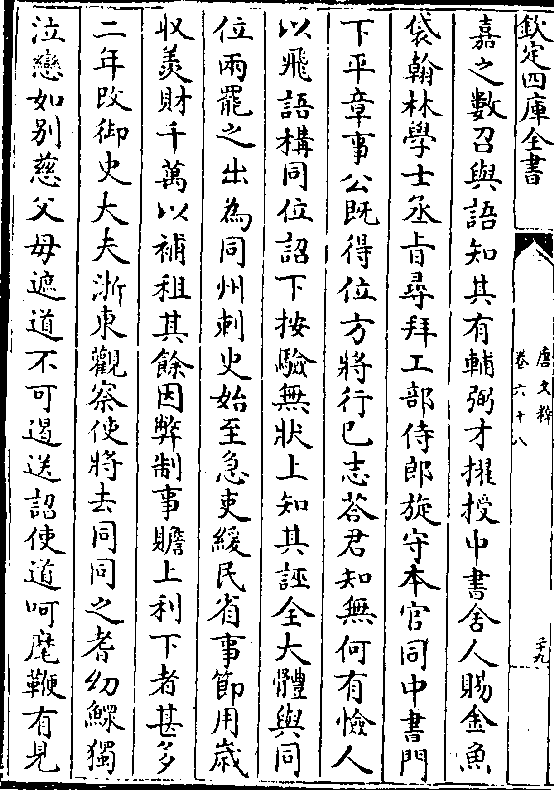 欽定四庫全書
唐文粹
卷六十八
三十九
嘉之數召與語知其有輔弼才擢授中書舍人賜金魚
袋翰林學士丞旨尋拜工部侍郎旋守本官同中書門
下平章事公既得位方將行已志荅君知無何有憸人
以飛語構同位詔下按驗無狀上知其誣全大體與同
位兩罷之出為同州刺史始至急吏緩民省事節用歳
收羨財千萬以補租其餘因弊制事贍上利下者甚多
二年改御史大夫浙東觀察使將去同同之耆幼鰥獨
泣戀如别慈父母遮道不可遏送詔使道呵麾鞭有見